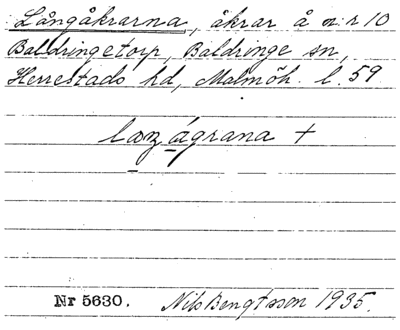 Långåkrarna, åkrar å n:r 10
Baldringetorp, Baldringe sn,
Herrestads hd, Malmöh. l. 59
ágrana +
Nr 5630. Nils Bengtsson 1935.